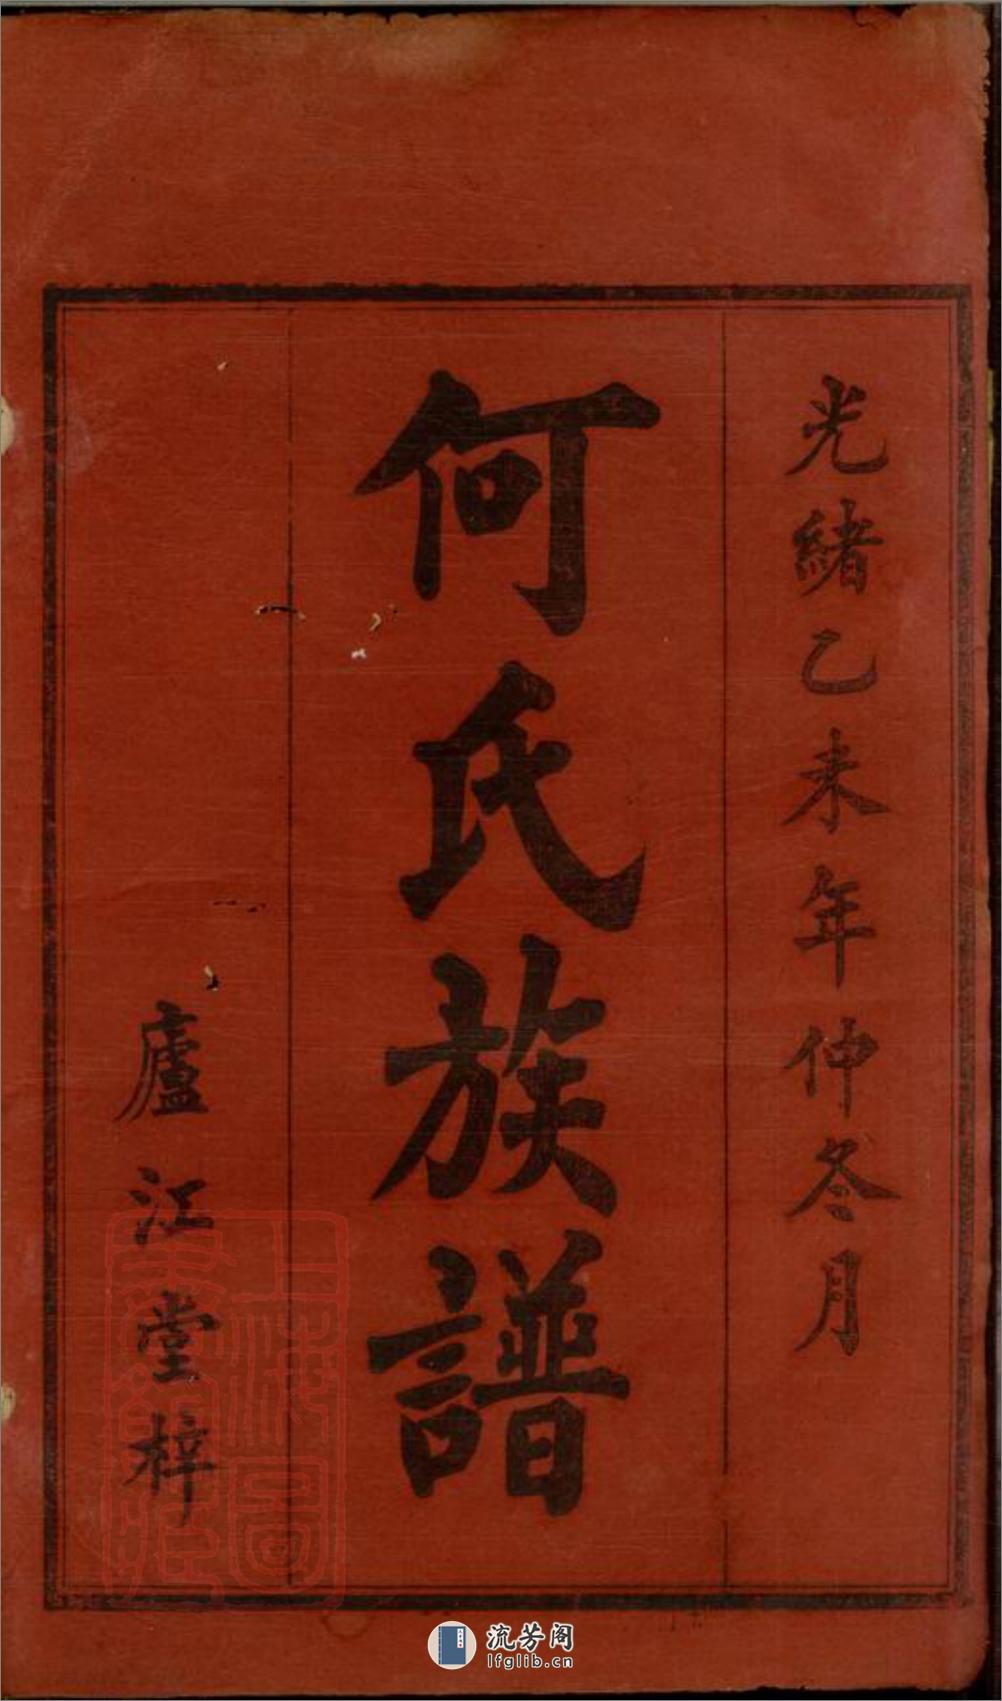 光緒乙未年仲冬月
何氏族譜
廬江堂梓
上海圖
書館藏
流芳阁
lfglib.cn